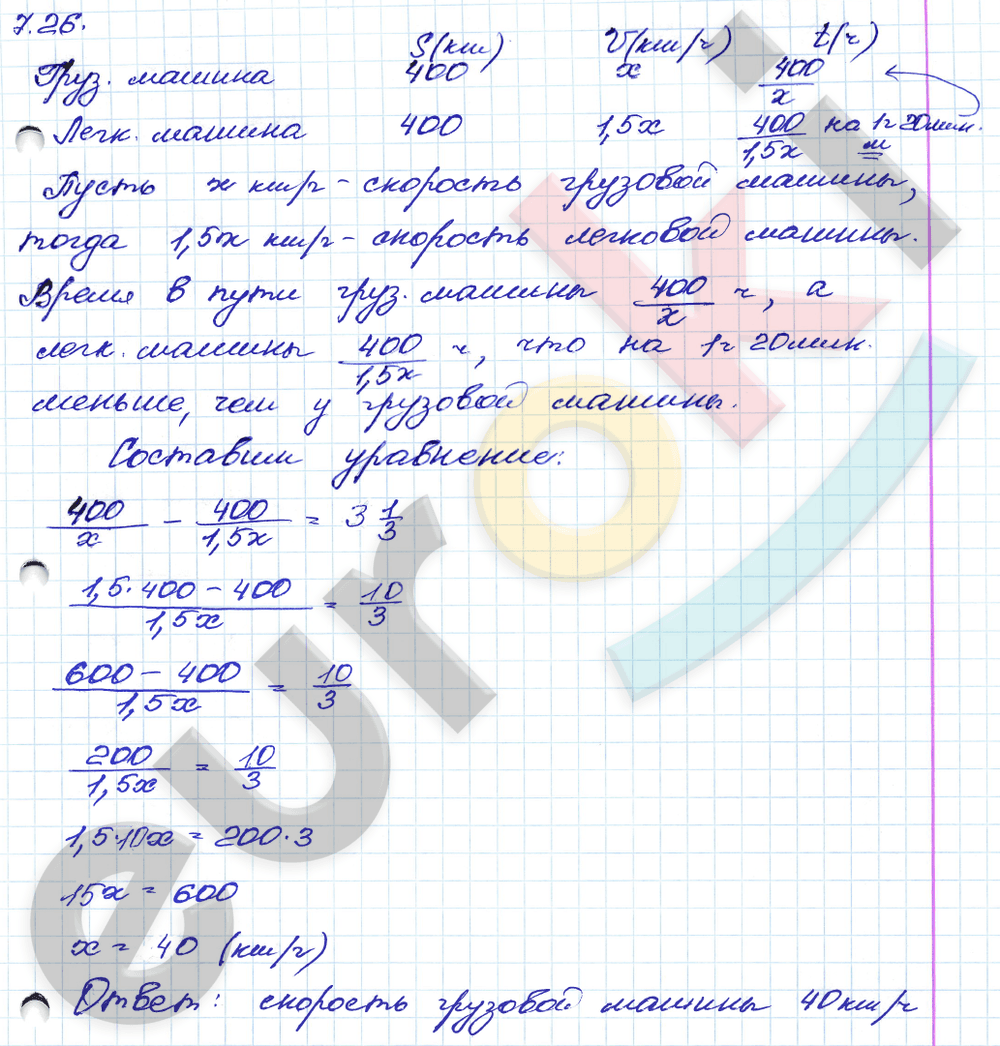 7.26.
S(км) V(км/ч) t(ч)
Груз. машина 400 x 400/x
Легк. машина 400 1,5x 400/1,5x на 1ч 20мин. м
Пусть x км/ч - скорость грузовой машины,
тогда 1,5x км/ч - скорость легковой машины.
Время в пути груз. машины 400/x ч, а
легк. машины 400/1,5x ч, что на 1ч 20мин.
меньше, чем у грузовой машины.
Составим уравнение:
400/x - 400/1,5x = 3 1/3
1,5·400 - 400/1,5x = 10/3
600 - 400/1,5x = 10/3
200/1,5x = 10/3
1,5·10x = 200·3
15x = 600
x = 40 (км/ч)
Ответ: скорость грузовой машины 40км/ч
euroki